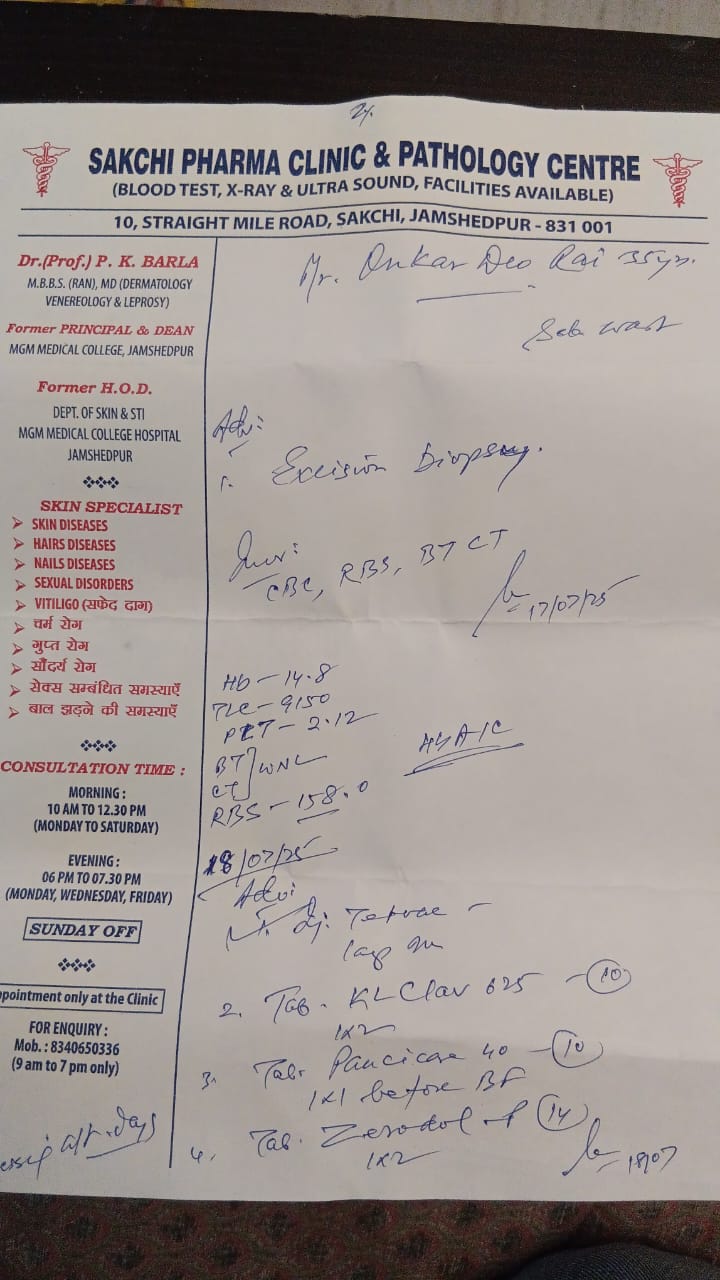 2y.
SAKCHI PHARMA CLINIC & PATHOLOGY CENTRE
(BLOOD TEST, X-RAY & ULTRA SOUND, FACILITIES AVAILABLE)
10, STRAIGHT MILE ROAD, SAKCHI, JAMSHEDPUR - 831 001
Dr.(Prof.) P. K. BARLA
M.B.B.S. (RAN), MD (DERMATOLOGY
VENEREOLOGY & LEPROSY)
Former PRINCIPAL & DEAN
MGM MEDICAL COLLEGE, JAMSHEDPUR
Former H.O.D.
DEPT. OF SKIN & STI
MGM MEDICAL COLLEGE HOSPITAL
JAMSHEDPUR
SKIN SPECIALIST
SKIN DISEASES
HAIRS DISEASES
NAILS DISEASES
SEXUAL DISORDERS
VITILIGO (सफेद दाग)
चर्म रोग
गुप्त रोग
सौंदर्य रोग
सेक्स सम्बंधित समस्याएँ
बाल झड़ने की समस्याएँ
CONSULTATION TIME :
MORNING :
10 AM TO 12.30 PM
(MONDAY TO SATURDAY)
EVENING :
06 PM TO 07.30 PM
(MONDAY, WEDNESDAY, FRIDAY)
SUNDAY OFF
ppointment only at the Clinic
FOR ENQUIRY :
Mob. : 8340650336
(9 am to 7 pm only)
days
Mr. Onkar Deo Rai 35yr.
Adv:
1. Excision Biopsy.
Inv:
CBC, RBS, BT CT
17/07/25
Hb - 14.8
TLC - 9150
PLT - 2.12
BT
CT ] WNL
RBS - 158.0
HbA1C
18/07/25
Adv
1. Inj. Tetvac -
2. Tab. KL Clav 625 - 10
1x2
3. Tab. 40 - 10
1x1 before BF
4. Tab. Zerodol -P 14
1x2
18/07